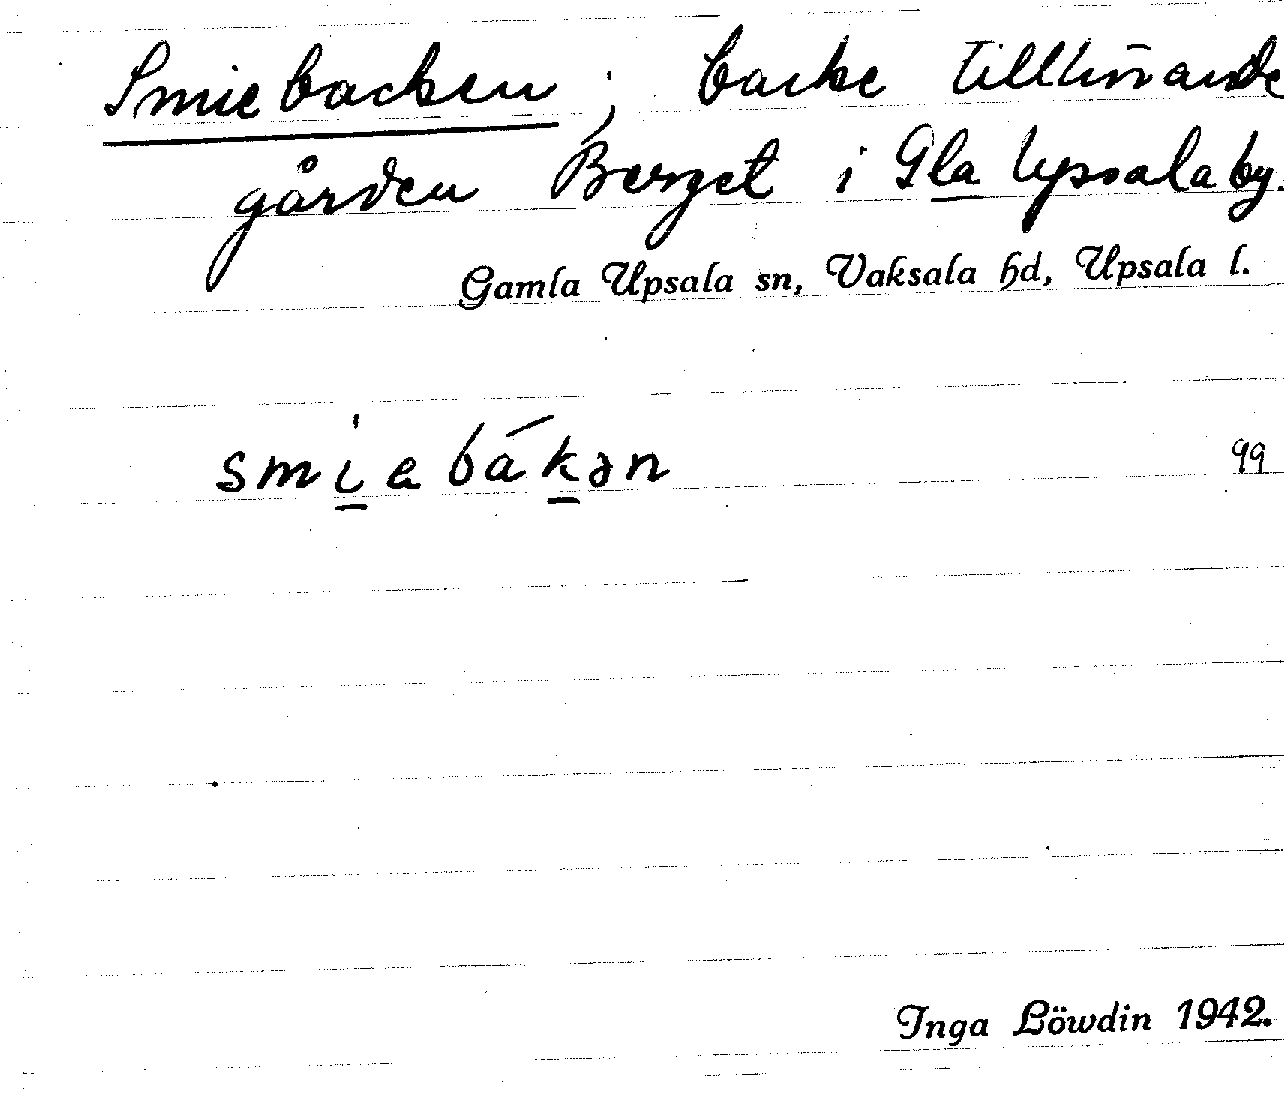 Smiebacken; backe tillhörande
gården Berget i Gla Upsala by.
Gamla Upsala sn, Vaksala hd, Upsala l.
smi̲ebák̲ən 99
Inga Löwdin 1942.